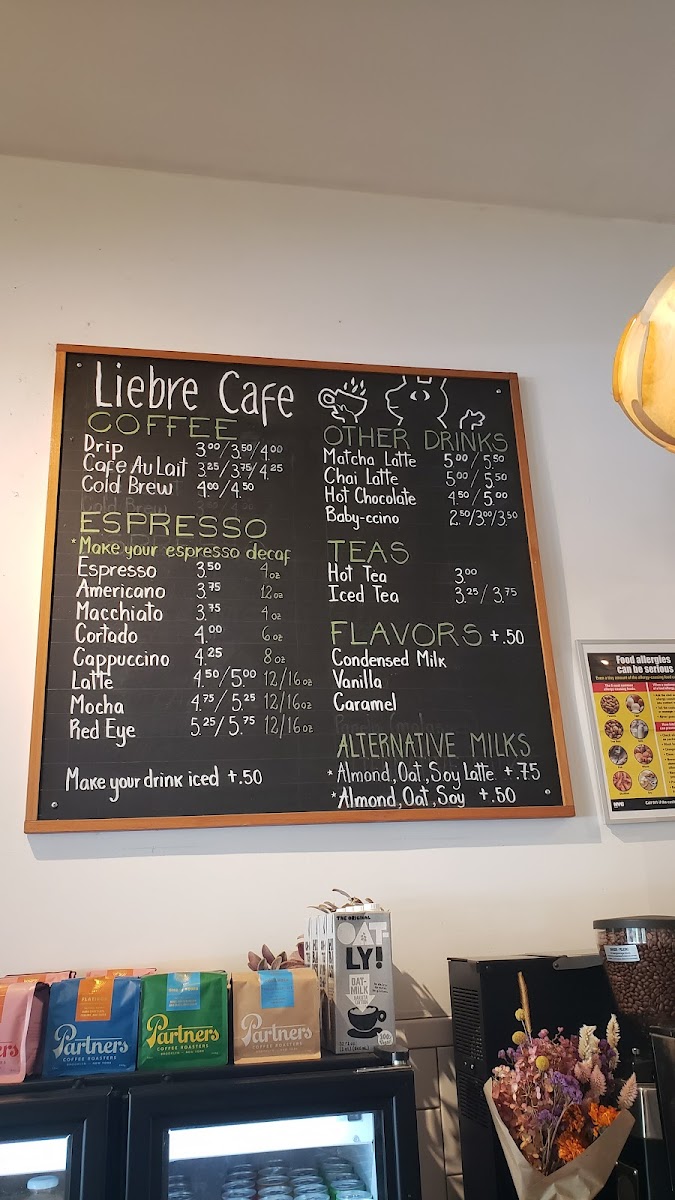 Liebre Cafe
COFFEE
Drip 3.00/3.50/4.00
Cafe Au Lait 3.25/3.75/4.25
Cold Brew 4.00/4.50
ESPRESSO
*Make your espresso decaf
Espresso 3.50 4oz
Americano 3.75 12oz
Macchiato 3.75 4oz
Cortado 4.00 6oz
Cappuccino 4.25 8oz
Latte 4.50/5.00 12/16oz
Mocha 4.75/5.25 12/16oz
Red Eye 5.25/5.75 12/16oz
Make your drink iced +.50
OTHER DRINKS
Matcha Latte 5.00/5.50
Chai Latte 5.00/5.50
Hot Chocolate 4.50/5.00
Baby-ccino 2.50/3.00/3.50
TEAS
Hot Tea 3.00
Iced Tea 3.25/3.75
FLAVORS +.50
Condensed Milk
Vanilla
Caramel
ALTERNATIVE MILKS
*Almond, Oat, Soy Latte +.75
*Almond, Oat, Soy +.50
Food allergies
can be serious
NYC
Partners
COFFEE ROASTERS
BROOKLYN NEW YORK
Partners
COFFEE ROASTERS
BROOKLYN NEW YORK
Partners
COFFEE ROASTERS
THE ORIGINAL
OAT-
LY!
OAT-
MILK